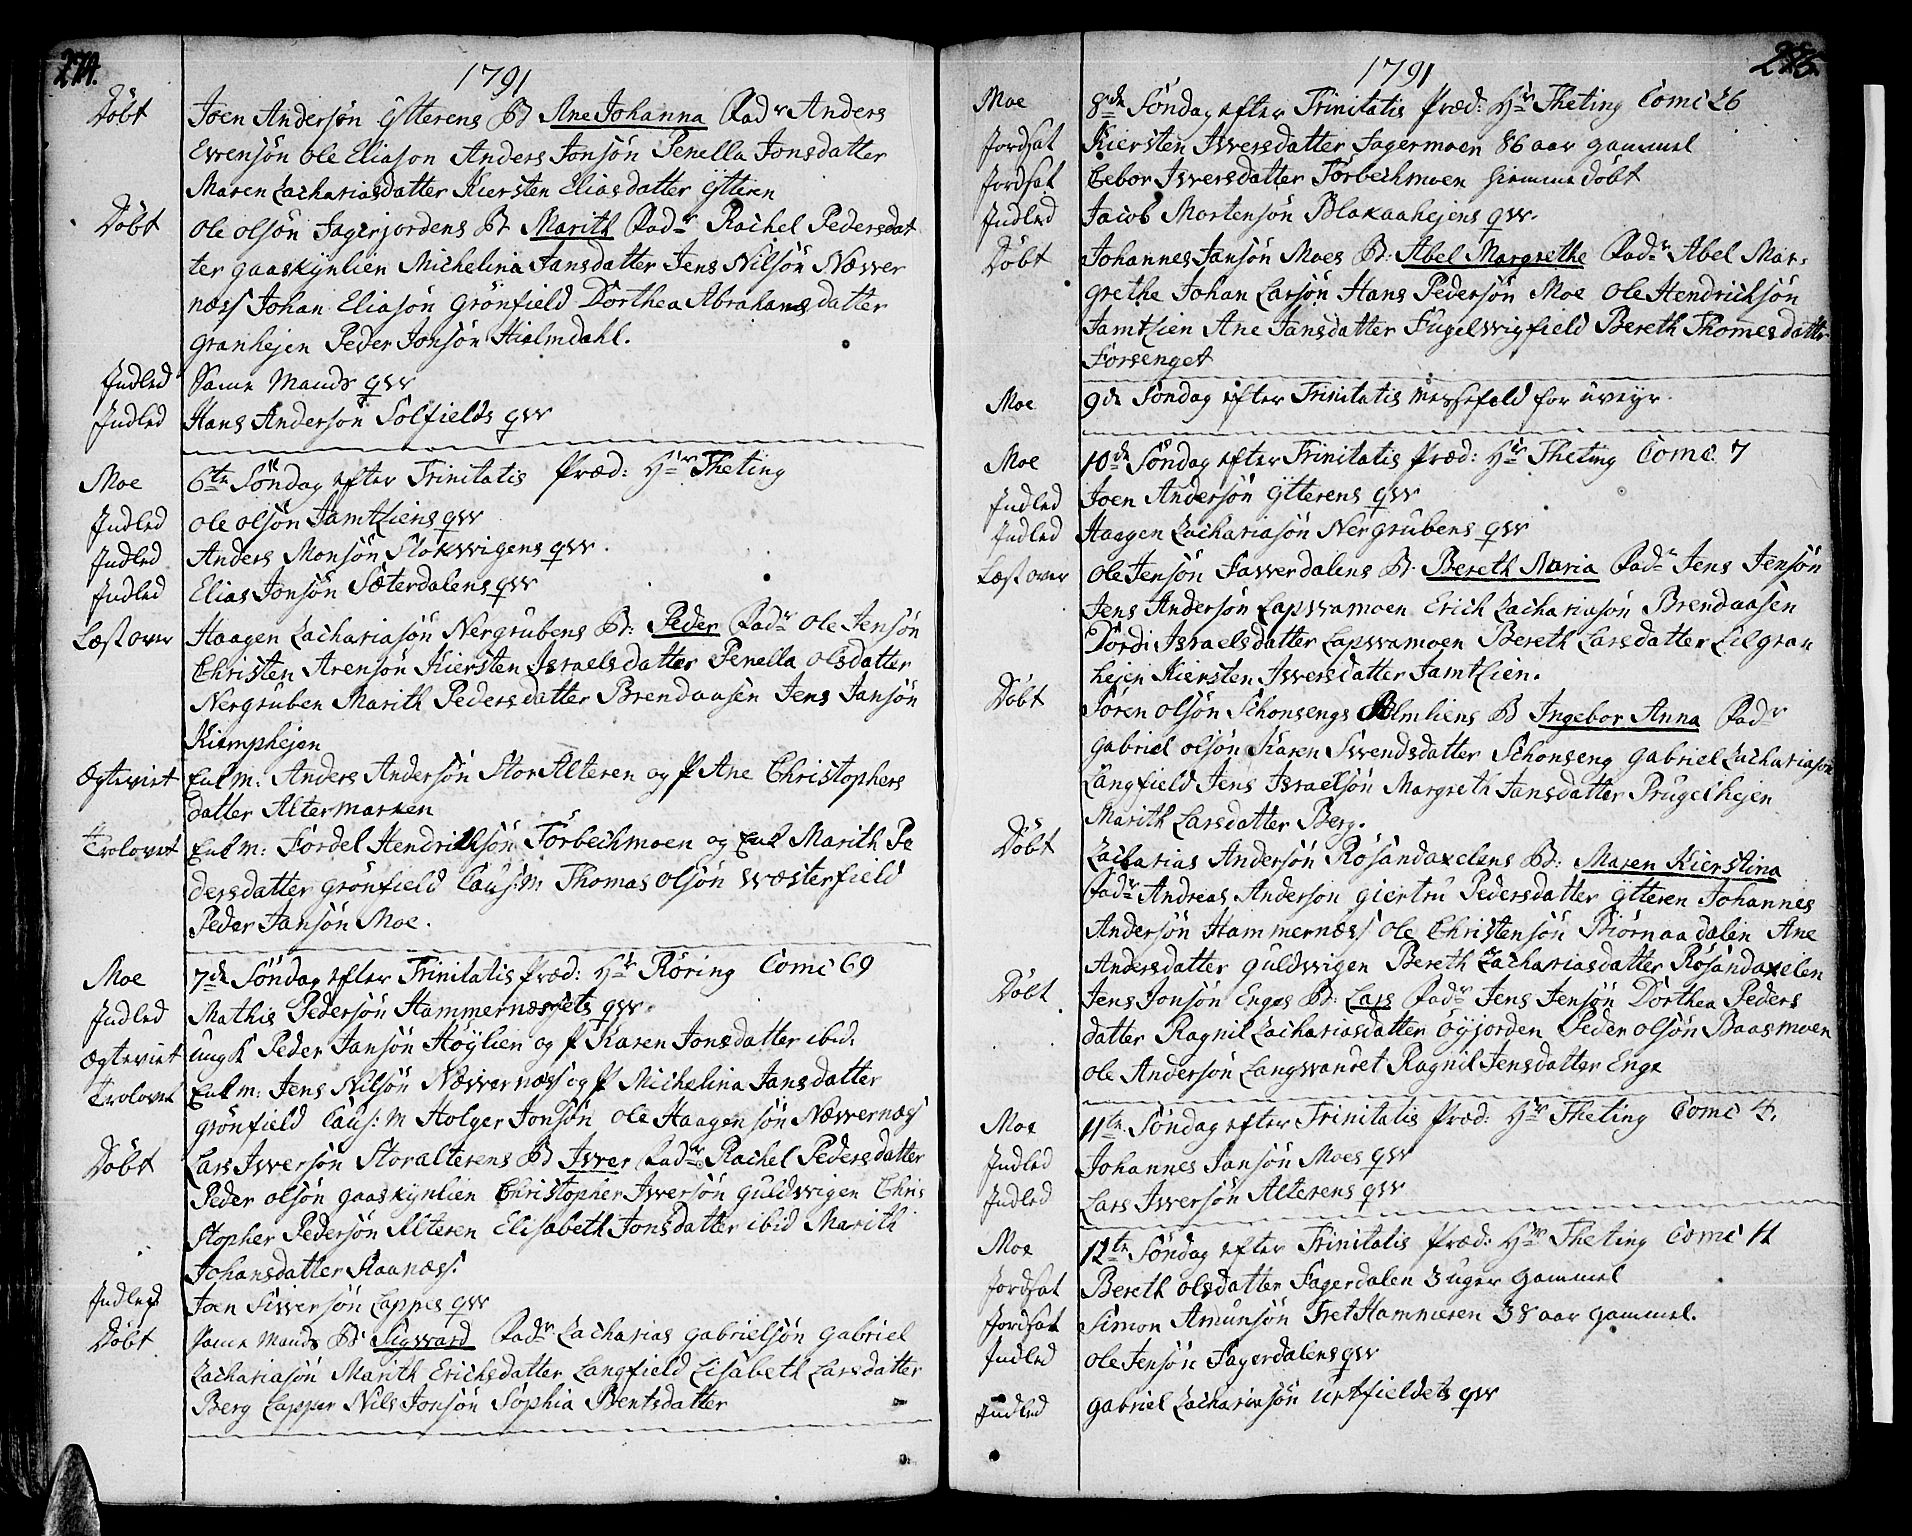 274.
1791
Döbt Joen Andersön Ytterens B Ane Johanna Fadr Anders
Evensön Ole Eliason Anders Jonsön Penella Jonsdatter
Maren Zachariasdatter Kiersten Eliasdatter Ytteren
Döbt Ole Olsön Fagerjordens B Marith Fadr Rachel Pedersdat
ter Gaaskynlien Michelina Jansdatter Jens Nilsön Næver
næss Johan Eliasön Grönfield Dorthea Abrahamsdatter
Granhejen Peder Jonsön Hielmdahl.
Indled Same Mands qvv
Indled Hans Andersön Solfields qvv
Moe 6te Söndag efter Trinitatis Præd: Hr Theting
Indled Ole Olsön Jamtliens qvv
Indled Anders Monsön Stokvigens qvv.
Indled Elias Jonsön Sæterdalens qvv
Læst over Haagen Zachariasön Nergrubens B: Peder Fadr Ole Jensön
Christen Arensön Kiersten Israelsdatter Penella Olsdatter
Nergruben Marith Pedersdatter Brendaasen Jens Jansön
Kiemphejen
Ægteviet Enkm: Anders Andersön Stor Alteren og P Ane Christophers
datter Altermarken
Trolovet Enkm: Fordel Hendricksön Törbechmoen og Enk Marith Pe
dersdatter Grönfield Caus: M Thomas Olsön Wæsterfield
Peder Jansön Moe.
Moe 7de Söndag efter Trinitatis Præd: Hr Röring Comc 69
Indled Mathis Pedersön Hammernæssets qvv.
Ægteviet Ung K Peder Jansön Höylien og P Karen Jonsdatter ibid.
Trolovet Enkm: Jens Nilsön Nævernæss og P Michelina Jansdatter
Grönfield Caus: M Holger Jonsön Ole Haagensön Nævernæss
Döbt Lars Iversön Storalterens B Iver Fadr Rachel Pedersdatter
Peder Olsön Gaaskynlien Christopher Iversön Guldvigen Chris
stopher Pedersön Alteren Elisabeth Jonsdatter ibid Marith
Johansdatter Raanæss.
Indled Joen Siversön Lappes qvv
Döbt Same Mands B: Sigvard Fadr Zacharias Gabrielsön Gabriel
Zachariasön Marith Erichsdatter Langfield Lisabeth Larsdatter
Berg Lapper Nils Jonsön Sophia Bentsdatter
1791
Moe 8de Söndag efter Trinitatis Præd: Hr Theting Comc 26
Jordsat Kiersten Iversdatter Fagermoen 86 aar gammel
Jordsat Cebor Iversdatter Törbechmoen hiemme döbt
Indled Jacob Mortensön Blakaahejens qvv.
Döbt Johannes Jansön Moes B: Abel Margrethe Fadr Abel Mar-
grethe Johan Larsön Hans Pedersön Moe Ole Hendricksön
Jamtlien Ane Jansdatter Fugelvigfield Bereth Thomesdatter
Forsenget
Moe 9de Söndag efter Trinitatis Messefald for uveyr.
Moe 10de Söndag efter Trinitatis Præd: Hr Theting Comc. 7
Indled Joen Andersön Ytterens qvv
Indled Haagen Zachariasön Nergrubens qvv
Læst over Ole Jensön Faverdalens B. Bereth Maria Fadr Jens Jensön
Jens Andersön Lapvamoen Erich Zachariasön Brendaasen
Dordi Israelsdatter Lapvamoen Bereth Larsdatter Lilgran
hejen Kiersten Iversdatter Jamtlien.
Döbt Sören Olsön Schonsengs Almliens B Ingebor Anna Fadr
Gabriel Olsön Karen Svendsdatter Schonseng Gabriel Zachariasön
Langfield Jens Israelsön Margreth Jansdatter Prugelhejen
Marith Larsdatter Berg.
Döbt Zacharias Andersön Rösandaxelens B: Maren Kierstina
Fadr Andreas Anderson Giertru Pedersdatter Ytteren Johannes
Andersön Hammernæss Ole Christensön Biörnaadalen Ane
Andersdatter Guldvigen Bereth Zachariasdatter Rösandaxelen
Döbt Jens Jonsön Enges B: Lars Fadr Jens Jensön Dorthea Peders
datter Ragnil Zachariasdatter Öyjorden Peder Olsön Baasmoen
Ole Andersön Langvandet Ragnil Jensdatter Enge
Moe 11te Söndag efter Trinitatis Præd: Hr Theting Comc 4.
Indled Johannes Jansön Moes qvv
Indled Lars Iversön Alterens qvv
Moe 12te Söndag efter Trinitatis Præd: Hr Theting Comc 11
Jordsat Bereth Olsdatter Fagerdalen 3 uger gammel
Jordsat Simon Amunsön Tret Hammeren 38 aar gammel.
Indled Ole Jensön Fagerdalens qvv
Indled Gabriel Zachariasön Urtfieldets qvv